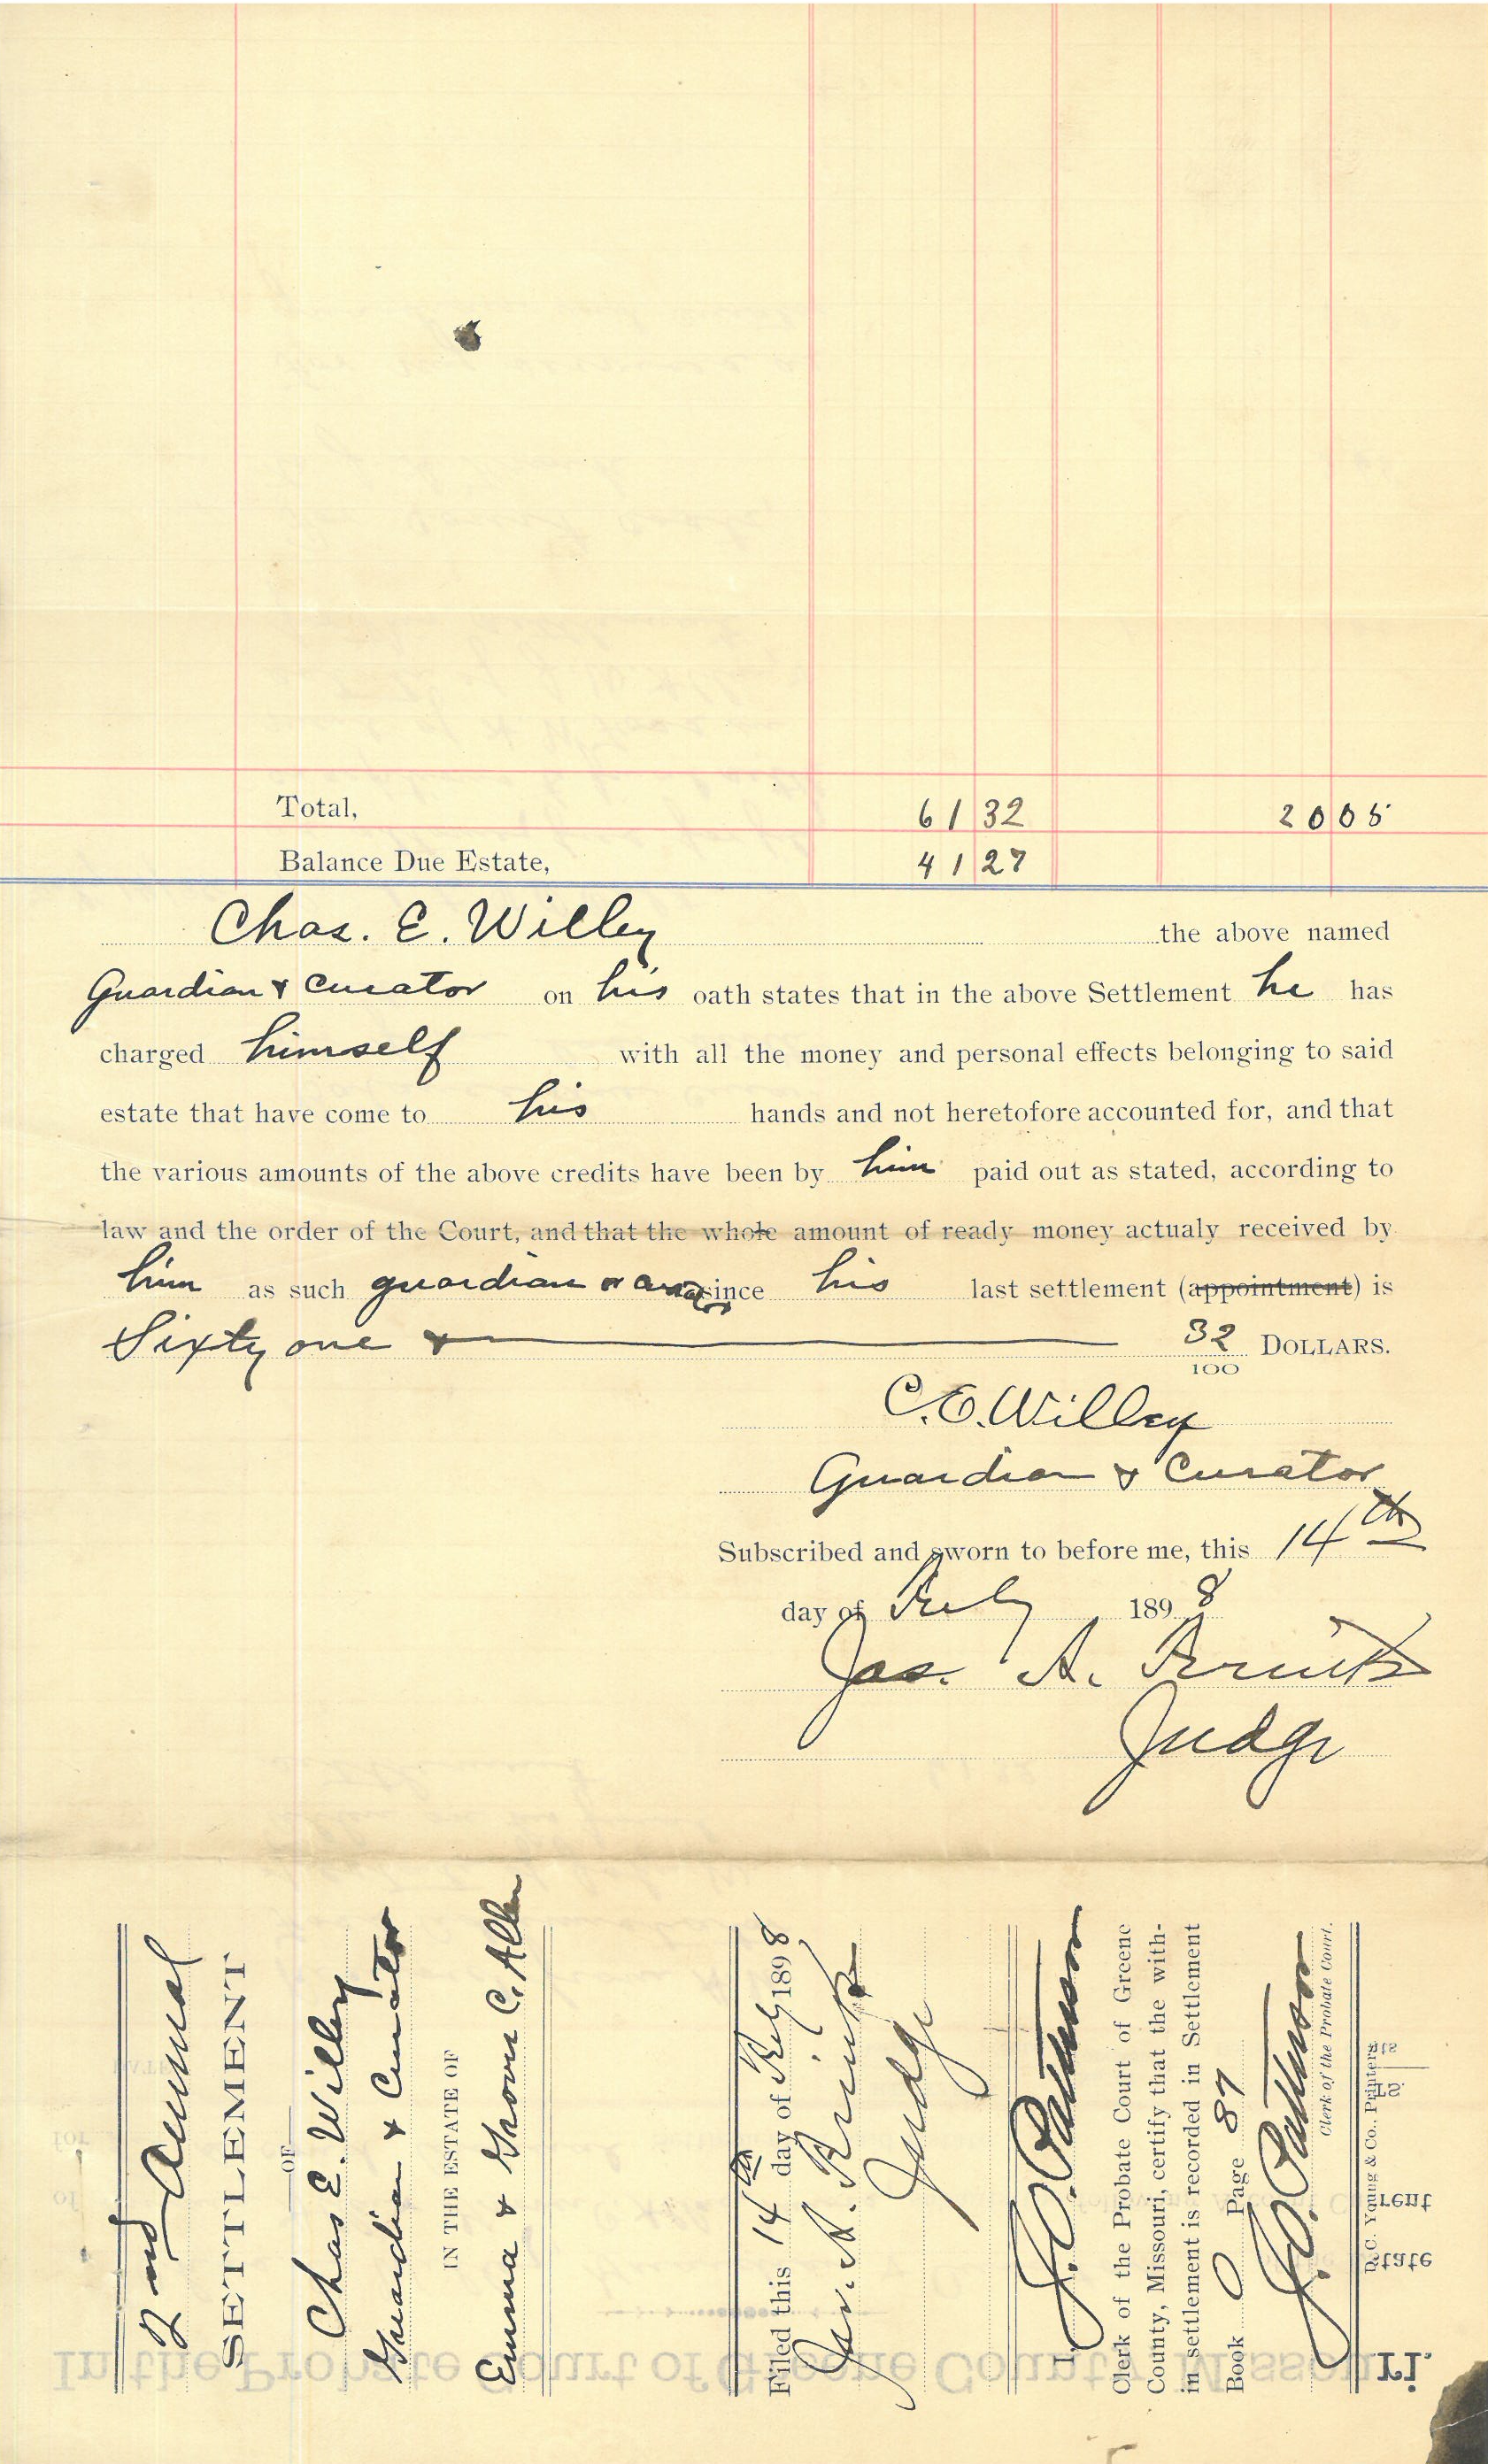 Total, 61 32 20 05
Balance Due Estate, 41 27
Chas. E. Willey the above named
Guardian & Curator on his oath states that in the above Settlement he has
charged himself with all the money and personal effects belonging to said
estate that have come to his hands and not heretofore accounted for, and that
the various amounts of the above credits have been by him paid out as stated, according to
law and the order of the Court, and that the whole amount of ready money actualy received by
him as such guardian since his last settlement (appointment) is
Sixty one & 32/100 DOLLARS.
C. E. Willey
Guardian & Curator
Subscribed and sworn to before me, this 14th
day of 1898
Jas. A.
Judge
2nd Annual
SETTLEMENT
OF
Chas E. Willey
Guardian & Curator
IN THE ESTATE OF
Emma & C. Allen
Filed this 14th day of 1898
A.
Judge
I, J. C.
Clerk of the Probate Court of Greene
County, Missouri, certify that the with-
in settlement is recorded in Settlement
Book O Page 87
J. C.
Clerk of the Probate Court.
Young & Co., Printers
In the Probate Court of Greene County, Missouri.